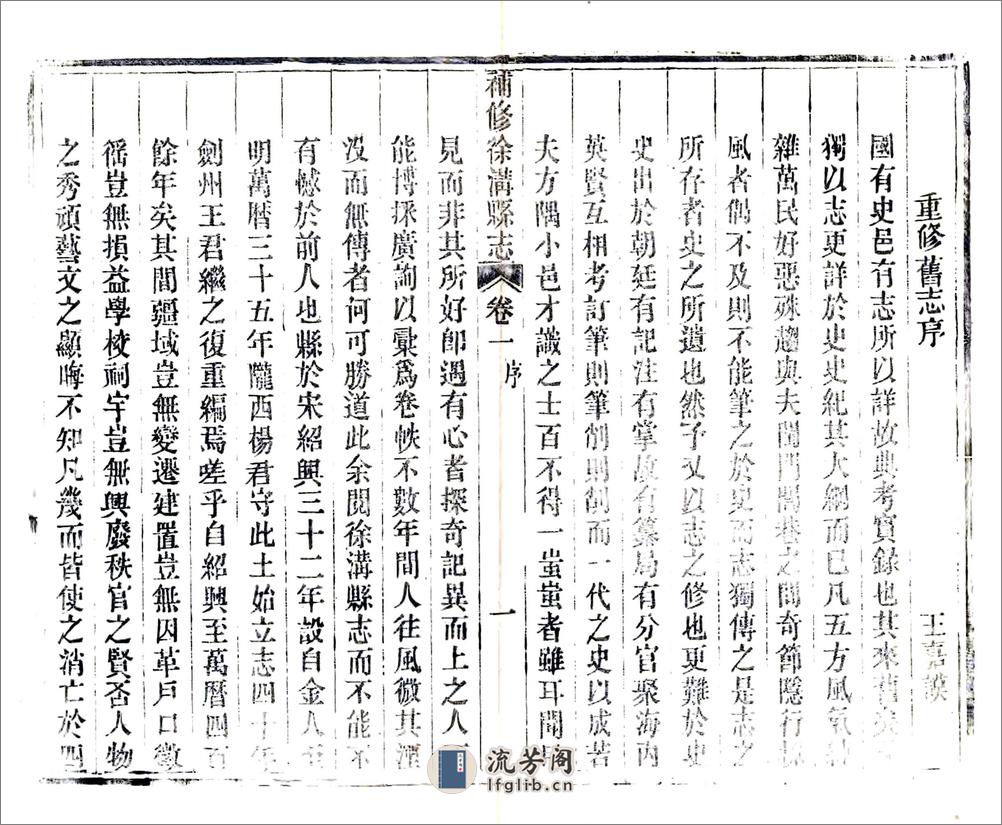 重修舊志序　王嘉謨
國有史邑有志所以詳故典考實錄也其來舊矣
獨以志更詳於史史紀其大綱而已凡五方風氣
雜萬民好惡殊趨與夫閨門閭巷之間奇節隱行
風者偶不及則不能筆之於史而志獨傳之是志之
所存者史之所遺也然予又以志之修也更難於史
史出於朝廷有記注有掌故有纂局有分官聚海內
英賢互相考訂筆則筆削則削而一代之史以成若
夫方隅小邑才識之士百不得一蚩蚩者雖耳聞
補修徐溝縣志　卷一　序　一
見而非其所好卽遇有心者探奇記異而上之人
能博採廣詢以彙爲卷帙不數年間人往風微其湮
没而無傳者何可勝道此余閱徐溝縣志而不能不
有憾於前人也縣於宋紹興三十二年設自金人至
明萬曆三十五年隴西楊君守此土始立志四十年
劍州王君繼之復重編焉嗟乎自紹興至萬曆四百
餘年矣其間疆域豈無變遷建置豈無因革戶口徵
徭豈無損益學校祠宇豈無興廢秩官之賢否人物
之秀頑藝文之顯晦不知凡幾而皆使之消亡於四
流芳阁
lfglib.cn